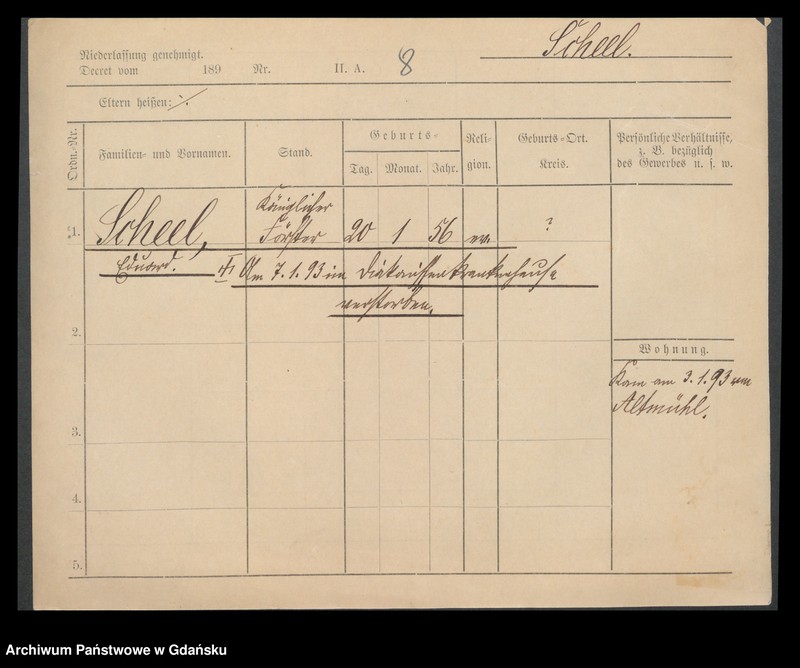 Scheel.
Niederlassung genehmigt.
Decret vom 189 Nr. II. A. 8
Eltern heißen: ./.
Ordn.-Nr. Familien- und Vornamen. Stand. Geburts- Tag. Monat. Jahr. Religion. Geburts-Ort. Kreis. Persönliche Verhältnisse, z. B. bezüglich des Gewerbes u. s. w.
Königlicher
1. Scheel, Förster 20 1 56 ev. ?
Eduard. Am 7.1.93 im Diakonissenkrankenhause
verstorben.
2.
Wohnung.
Kam am 3.1.93 von
Altmühl.
3.
4.
5.
Archiwum Państwowe w Gdańsku